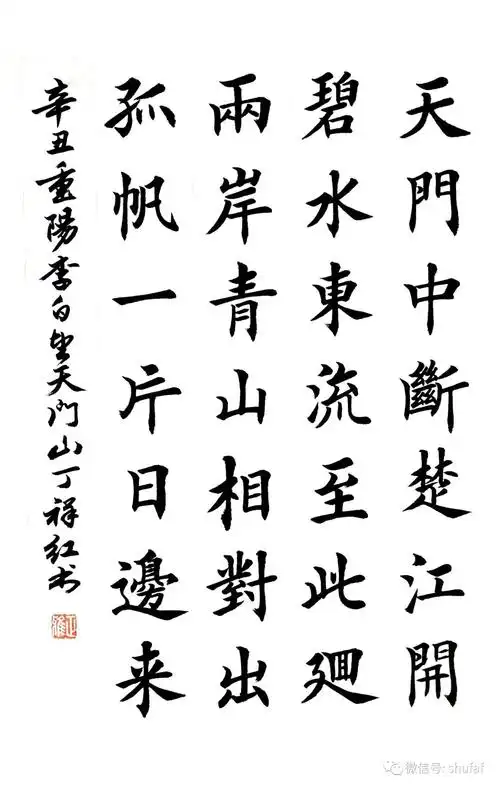 天門中斷楚江開
碧水東流至此廻
兩岸青山相對出
孤帆一片日邊来
辛丑重陽李白望天門山丁祥红书
微信号: shufaf